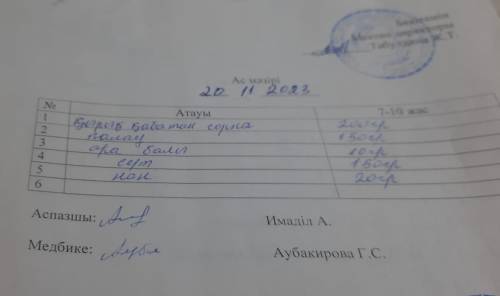 Бекітемін
Мектеп директоры
Ас мәзірі
20 11 2023
№ Атауы 7-10 жас
1 Қырық қабаттан сорпа 200гр
2 палау 150гр
3 ара балы 10гр
4 сүт 150гр
5 нан 20гр
6
Аспазшы: Имаділ А.
Медбике: Аубакирова Г.С.